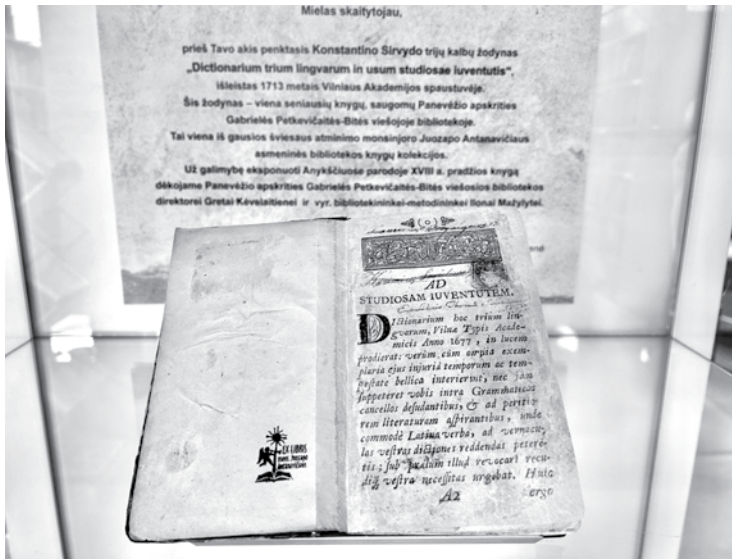 Mielas skaitytojau,
prieš Tavo akis penktasis Konstantino Sirvydo trijų kalbų žodynas
„Dictionarium trium lingvarum in usum studiosae iuventutis“,
išleistas 1713 metais Vilniaus Akademijos spaustuvėje.
Šis žodynas – viena seniausių knygų, saugomų Panevėžio apskrities
Gabrielės Petkevičaitės-Bitės viešojoje bibliotekoje.
Tai viena iš gausios šviesaus atminimo monsinjoro Juozapo Antanavičiaus
asmeninės bibliotekos knygų kolekcijos.
Už galimybę eksponuoti Anykščiuose parodoje XVIII a. pradžios knygą
dėkojame Panevėžio apskrities Gabrielės Petkevičaitės-Bitės viešosios bibliotekos
direktorei Gretai Kėvelaitienei ir vyr. bibliotekininkei-metodininkei Ilonai Mažylytei.
EX LIBRIS
AD
STUDIOSAM IUVENTUTEM.
DIctionarium hoc trium lin-
gvarum, Vilnæ Typis Acade-
micis Anno 1677, in lucem
prodierat: verùm cùm cœpta exem-
plaria ejus injuriâ temporum ac tem-
pestate bellica interierint, nec jam
suppeteret vobis intra Grammaticos
cancellos desudantibus, & ad peritio-
rem literaturam aspirantibus, unde
commodè Latina verba, ad vernacu-
las vestras dictiones reddendas petere-
tis; sub prælum illud revocari
vestra necessitas urgebat. Huic
A2
ergo